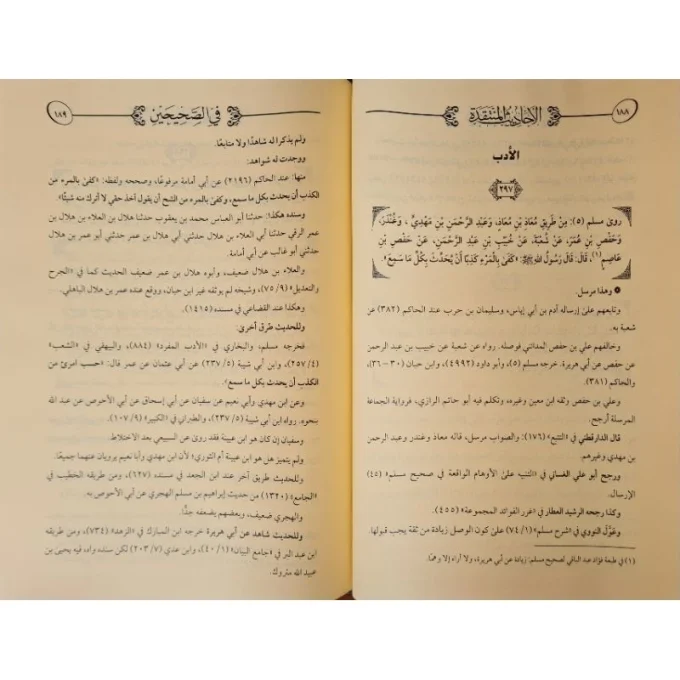 ١٨٨
الأحاديث المنتقدة
الأدب
٢٩٧
روى مسلم (٥): مِنْ طَرِيقِ مُعَاذِ بْنِ مُعَاذٍ، وَعَبْدِ الرَّحْمَنِ بْنِ مَهْدِيٍّ، وَغُنْدَرٍ،
وَحَفْصِ بْنِ عُمَرَ، عَنْ شُعْبَةَ، عَنْ خُبَيْبِ بْنِ عَبْدِ الرَّحْمَنِ، عَنْ حَفْصِ بْنِ
عَاصِمٍ(١)، قَالَ: قَالَ رَسُولُ اللهِ ﷺ: «كَفَىٰ بِالْمَرْءِ كَذِبًا أَنْ يُحَدِّثَ بِكُلِّ مَا سَمِعَ».
● وهذا مرسل.
وتابعهم على إرساله آدم بن أبي إياس، وسليمان بن حرب عند الحاكم (٣٨٢) عن
شعبة به.
وخالفهم علي بن حفص المدائني فوصله. رواه عن شعبة عن خبيب بن عبد الرحمن
عن حفص عن أبي هريرة. خرجه مسلم (٥)، وأبو داود (٤٩٩٢)، وابن حبان (٣٠ - ٣٦)،
والحاكم (٣٨١)
وعلي بن حفص وثقه ابن معين وغيره، وتكلم فيه أبو حاتم الرازي، فرواية الجماعة
المرسلة أرجح.
قال الدارقطني في «التتبع» (١٧٦): والصواب مرسل، قاله معاذ وغندر وعبد الرحمن
بن مهدي وغيرهم.
ورجح أبو علي الغساني في «التنبيه على الأوهام الواقعة في صحيح مسلم» (٤٥)
الإرسال.
وكذا رجحه الرشيد العطار في «غرر الفوائد المجموعة» (٤٥٥)
وعَوَّل النووي في «شرح مسلم» (١/ ٧٤) على كون الوصل زيادة من ثقة يجب قبولها.
(١) في طبعة فؤاد عبد الباقي لصحيح مسلم: زيادة عن أبي هريرة، ولا أراه إلا وهمًا.
في الصحيحين
١٨٩
ولم يذكرا له شاهدًا ولا متابعًا.
ووجدت له شواهد:
منها: عند الحاكم (٢١٩٦) عن أبي أمامة مرفوعًا، وصححه ولفظه: «كفىٰ بالمرء من
الكذب أن يحدث بكل ما سمع، وكفىٰ بالمرء من الشح أن يقول آخذ حقي لا أترك منه شيئًا».
وسنده هكذا: حدثنا أبو العباس محمد بن يعقوب حدثنا هلال بن العلاء بن هلال بن
عمر الرقي حدثنا أبي العلاء بن هلال حدثني أبي هلال بن عمر حدثني أبو عمر بن هلال
حدثني أبو غالب عن أبي أمامة
والعلاء بن هلال ضعيف، وأبوه هلال بن عمر ضعيف الحديث كما في «الجرح
والتعديل» (٩/ ٧٥)، وشيخه لم يوثقه غير ابن حبان، ووقع عنده عمر بن هلال الباهلي.
وهكذا عند القضاعي في مسنده (١٤١٥).
وللحديث طرق أخرى:
فخرجه مسلم، والبخاري في «الأدب المفرد» (٨٨٤)، والبيهقي في «الشعب»
(٤/ ٢٥٧)، وابن أبي شيبة (٥/ ٢٣٧) عن أبي عثمان عن عمر قال: «حسب امرئ من
الكذب أن يحدث بكل ما سمع».
وعن ابن مهدي وأبي نعيم عن سفيان عن أبي إسحاق عن أبي الأحوص عن عبد الله
بنحوه. رواه ابن أبي شيبة (٥/ ٢٣٧)، والطبراني في «الكبير» (٩/ ١٠٧).
وسفيان إن كان هو ابن عيينة فقد روى عن السبيعي بعد الاختلاط.
ولم يتميز هل هو ابن عيينة أم الثوري؛ لأن ابن مهدي وأبا نعيم يرويان عنهما جميعًا.
وللحديث طريق آخر عند ابن الجعد في مسنده (٦٢٧)، ومن طريقه الخطيب في
«الجامع» (١٣٢٠) من حديث إبراهيم بن مسلم الهجري عن أبي الأحوص به.
والهجري ضعيف، وبعضهم يضعفه جدًّا.
وللحديث شاهد عن أبي هريرة خرجه ابن المبارك في «الزهد» (٧٣٤)، ومن طريقه
ابن عبد البر في «جامع البيان» (١/ ٤٠)، وابن عدي (٧/ ٢٠٣) لكن سنده واه، فيه يحيى بن
عبيد الله متروك.